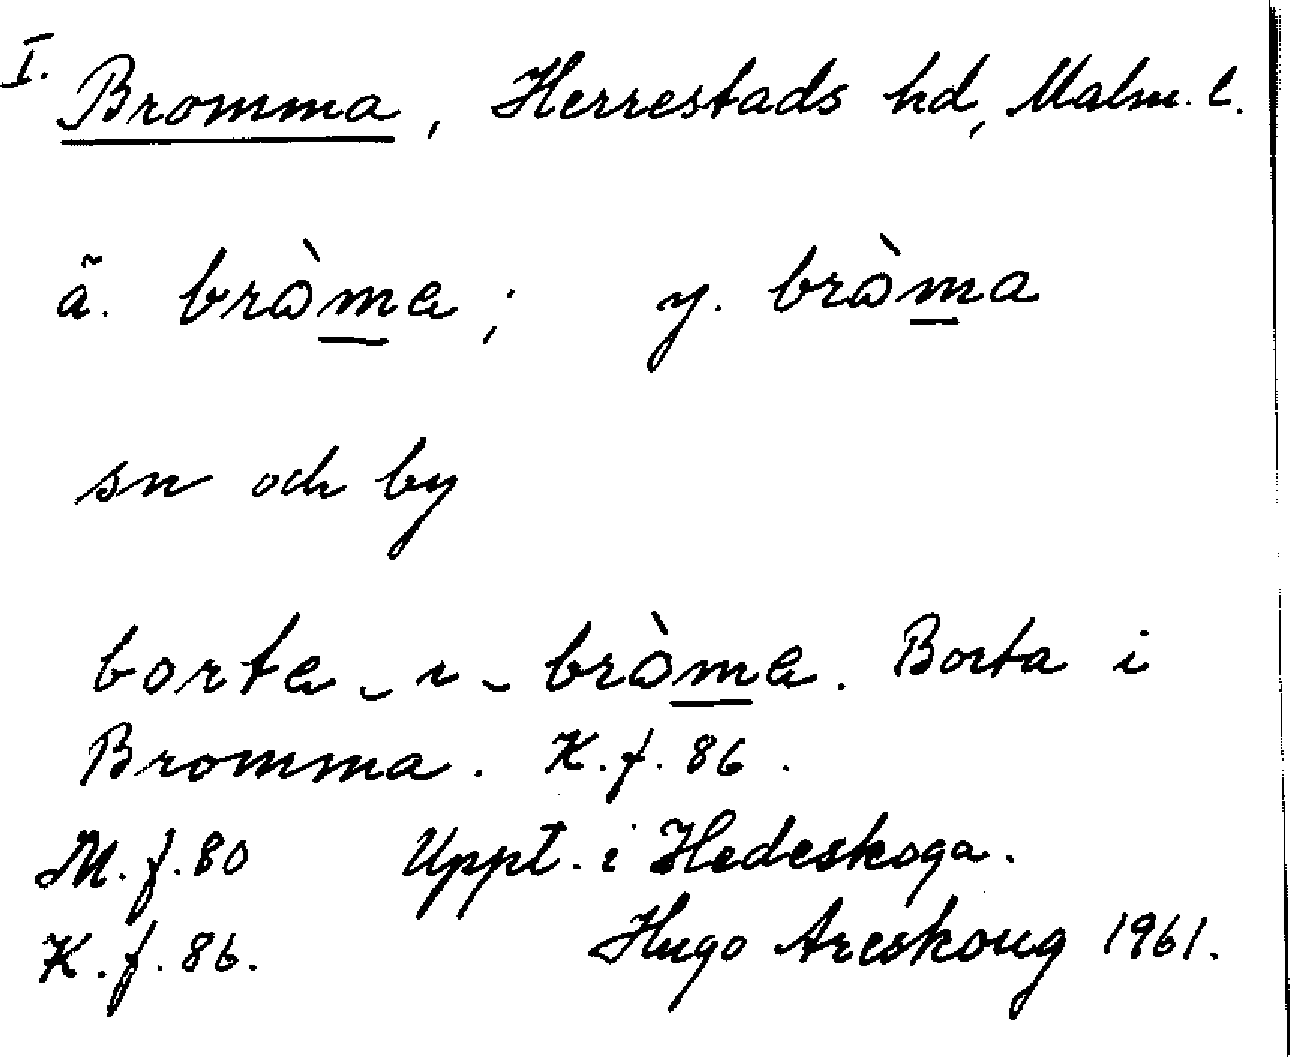 I. Bromma, Herrestads hd, Malm. l.
ä. bròma; y. bròma
sn och by
borta i bròma. Borta i
Bromma. K. f. 86.
M. f. 80 Uppt. i Hedeskoga.
K. f. 86. Hugo Areskoug 1961.